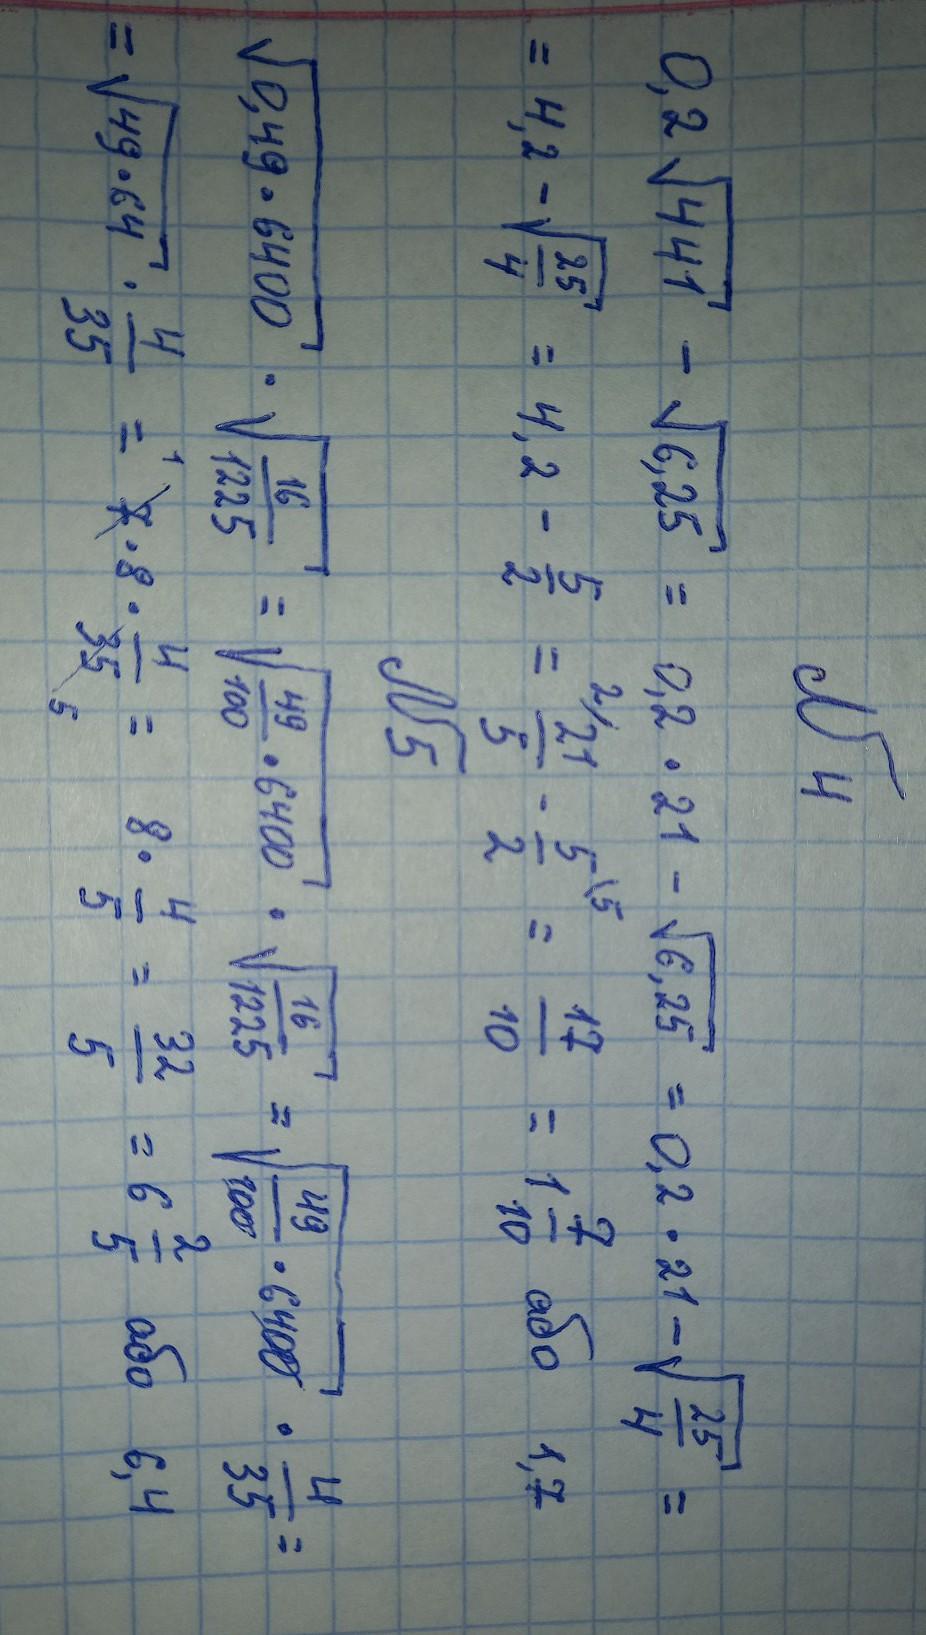 №4
0,2√441 - √6,25 = 0,2 · 21 - √6,25 = 0,2 · 21 - √25/4 =
= 4,2 - √25/4 = 4,2 - 5/2 = 2/21/5 - 5\5/2 = 17/10 = 1 7/10 або 1,7
№5
√0,49·6400 · √16/1225 = √49/100·6400 · √16/1225 = √49/100·6400 · 4/35 =
= √49·64 · 4/35 = 1 7·8·4/35 5 = 8·4/5 = 32/5 = 6 2/5 або 6,4